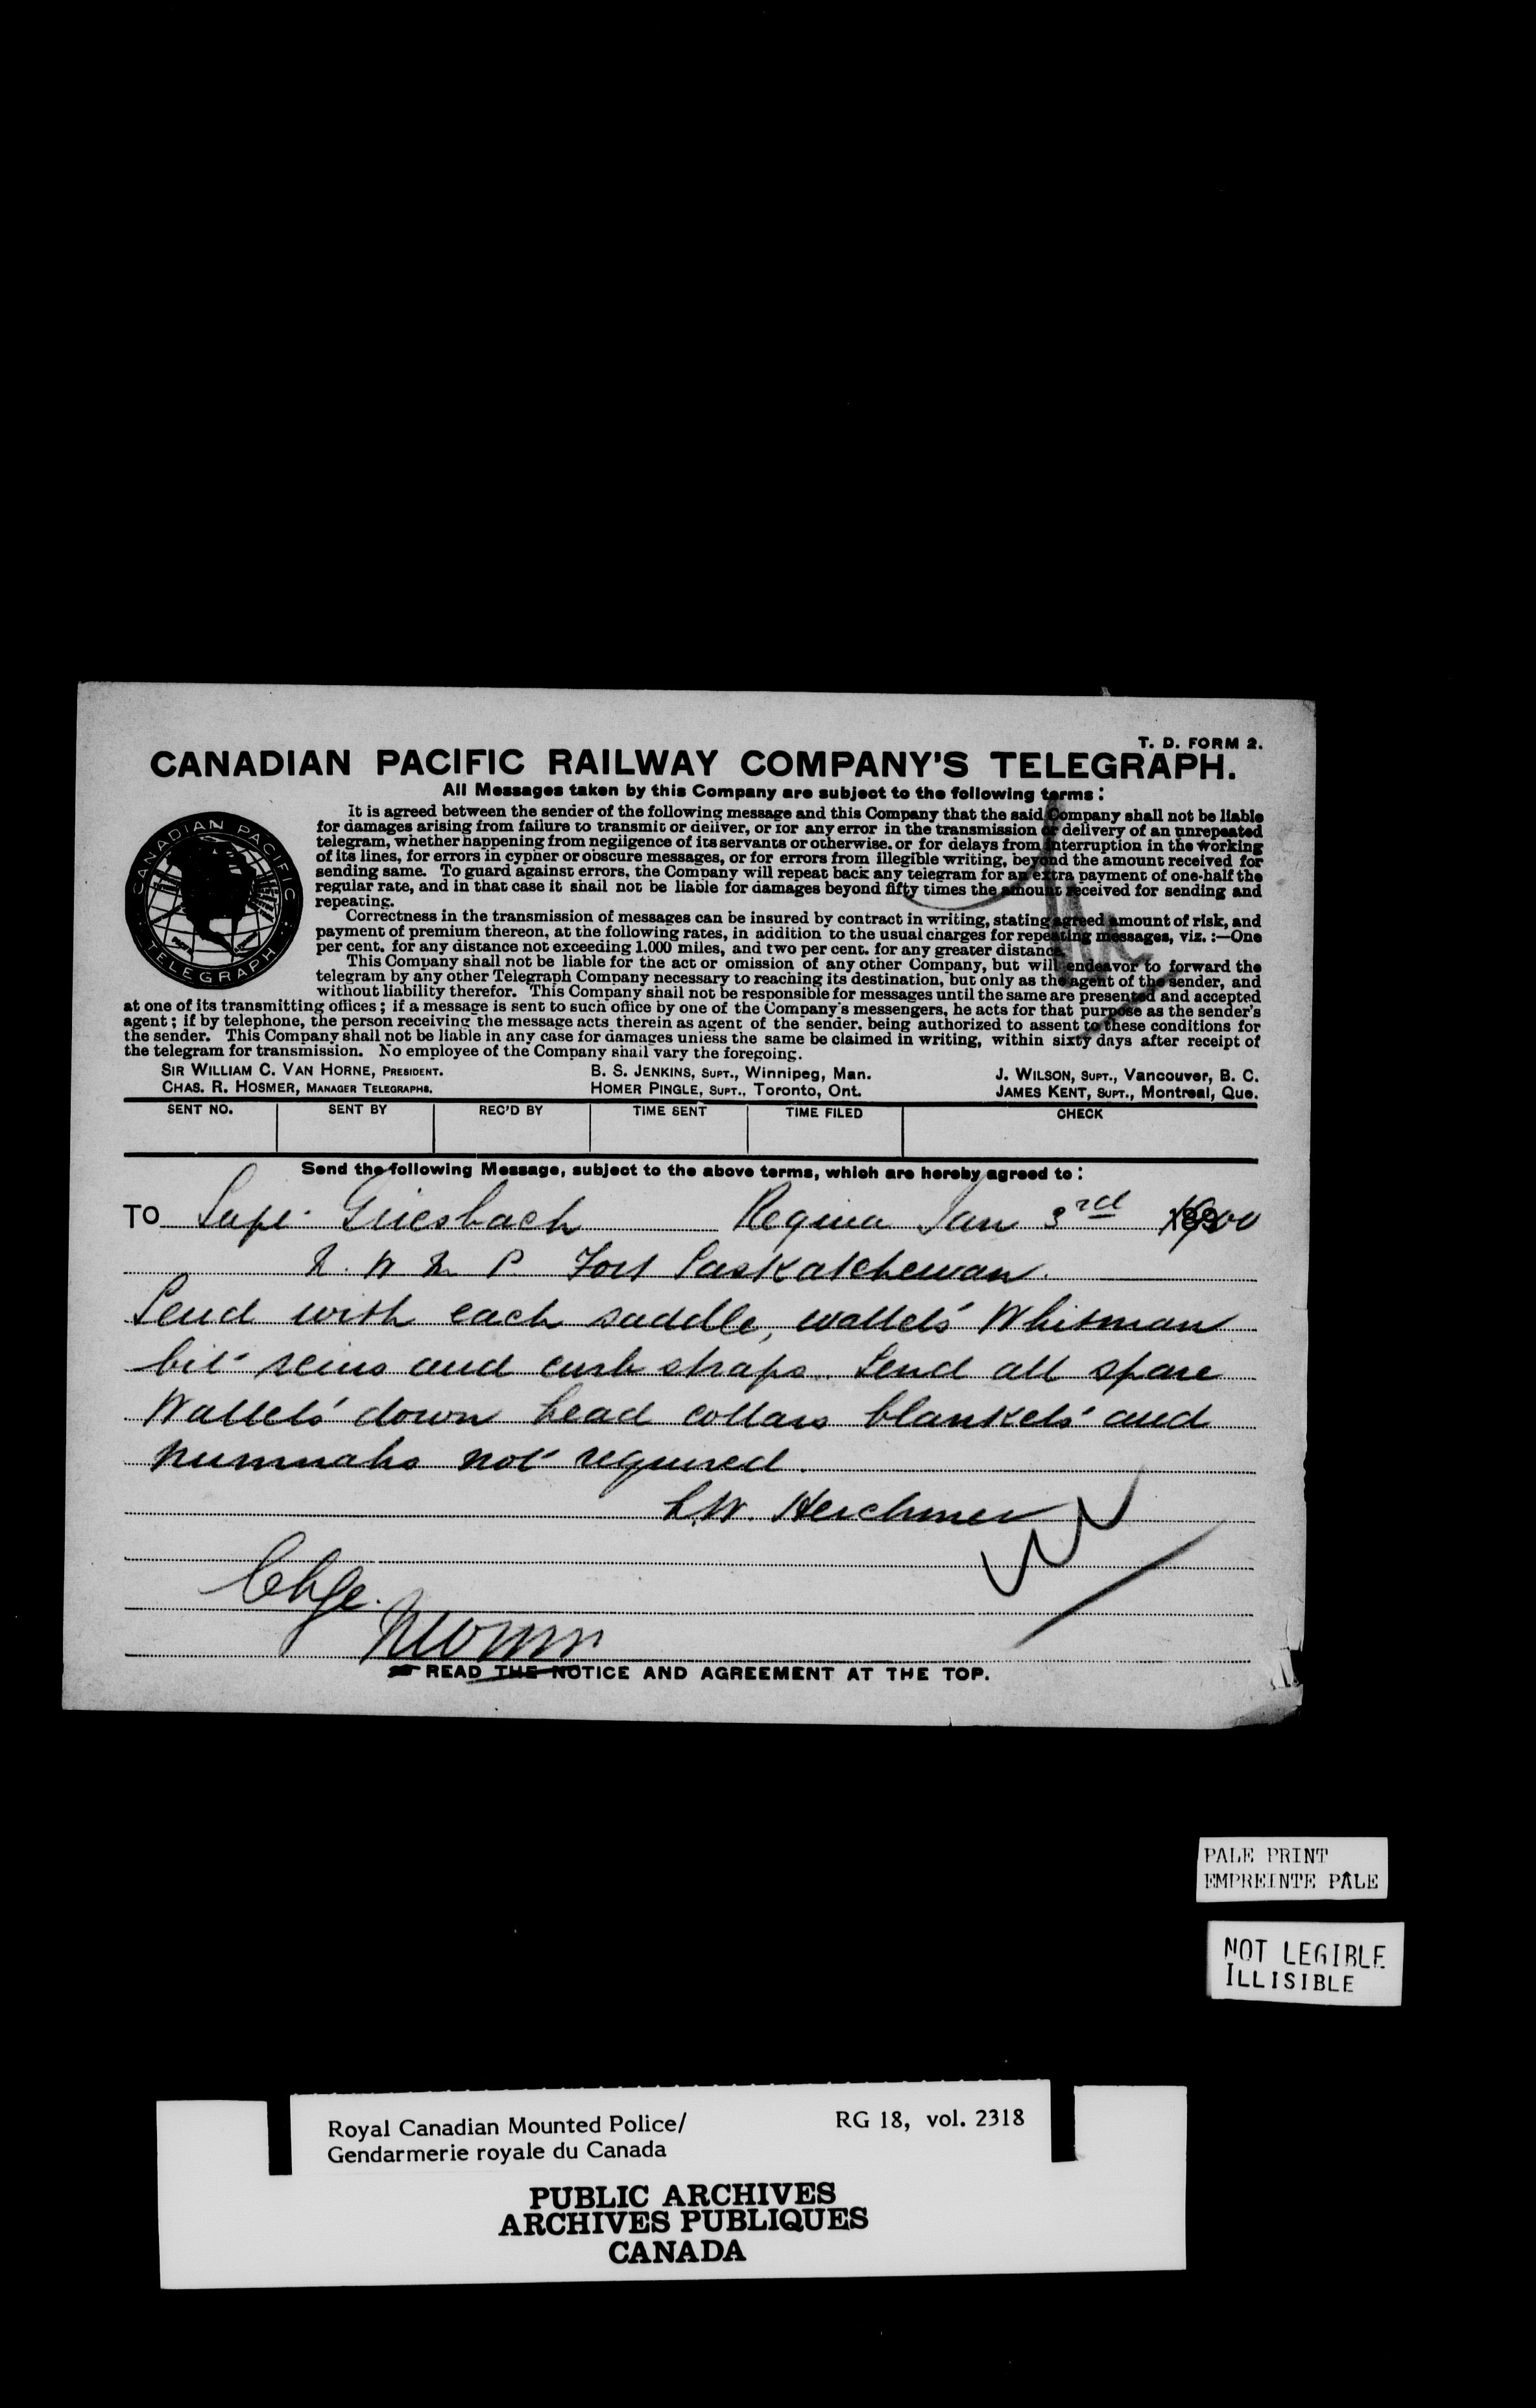 T. D. FORM 2.
CANADIAN PACIFIC RAILWAY COMPANY'S TELEGRAPH.
All Messages taken by this Company are subject to the following terms:
CANADIAN PACIFIC
TELEGRAPH
It is agreed between the sender of the following message and this Company that the said Company shall not be liable
for damages arising from failure to transmit or deliver, or for any error in the transmission or delivery of an unrepeated
telegram, whether happening from negligence of its servants or otherwise, or for delays from interruption in the working
of its lines, for errors in cypher or obscure messages, or for errors from illegible writing, beyond the amount received for
sending same. To guard against errors, the Company will repeat back any telegram for an extra payment of one-half the
regular rate, and in that case it shall not be liable for damages beyond fifty times the amount received for sending and
repeating.
Correctness in the transmission of messages can be insured by contract in writing, stating agreed amount of risk, and
payment of premium thereon, at the following rates, in addition to the usual charges for repeating messages, viz. :—One
per cent. for any distance not exceeding 1.000 miles, and two per cent. for any greater distance.
This Company shall not be liable for the act or omission of any other Company, but will endeavor to forward the
telegram by any other Telegraph Company necessary to reaching its destination, but only as the agent of the sender, and
without liability therefor. This Company shall not be responsible for messages until the same are presented and accepted
at one of its transmitting offices; if a message is sent to such office by one of the Company's messengers, he acts for that purpose as the sender's
agent; if by telephone, the person receiving the message acts therein as agent of the sender, being authorized to assent to these conditions for
the sender. This Company shall not be liable in any case for damages unless the same be claimed in writing, within sixty days after receipt of
the telegram for transmission. No employee of the Company shall vary the foregoing.
SIR WILLIAM C. VAN HORNE, PRESIDENT. B. S. JENKINS, SUPT., Winnipeg, Man. J. WILSON, SUPT., Vancouver, B. C.
CHAS. R. HOSMER, MANAGER TELEGRAPHS. HOMER PINGLE, SUPT., Toronto, Ont. JAMES KENT, SUPT., Montreal, Que.
SENT NO. SENT BY REC'D BY TIME SENT TIME FILED CHECK
Send the following Message, subject to the above terms, which are hereby agreed to:
TO Supt. Griesbach Regina Jan 3rd 1900
N. W. M. P. Fort Saskatchewan.
Send with each saddle, wallets Whitman
bit reins and curb straps. Send all spare
Wallets down head collars blankets and
numnahs not required.
L.W. Herchmer
Chge.
READ THE NOTICE AND AGREEMENT AT THE TOP.
PALE PRINT
EMPREINTE PÂLE
NOT LEGIBLE
ILLISIBLE
Royal Canadian Mounted Police/ RG 18, vol. 2318
Gendarmerie royale du Canada
PUBLIC ARCHIVES
ARCHIVES PUBLIQUES
CANADA